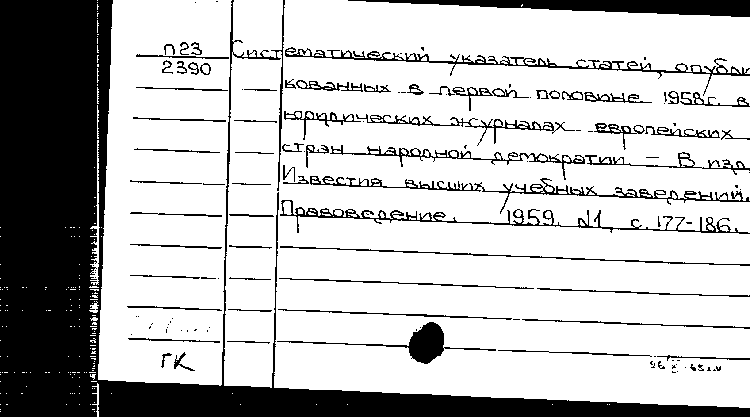 П23 Систематический указатель статей, опубли
2390
кованных в первой половине 1958г. в
юридических журналах европейских
стран народной демократии. – В изд.
Известия высших учебных заведений.
Правоведение. 1959. №1, с. 177-186.
ГК